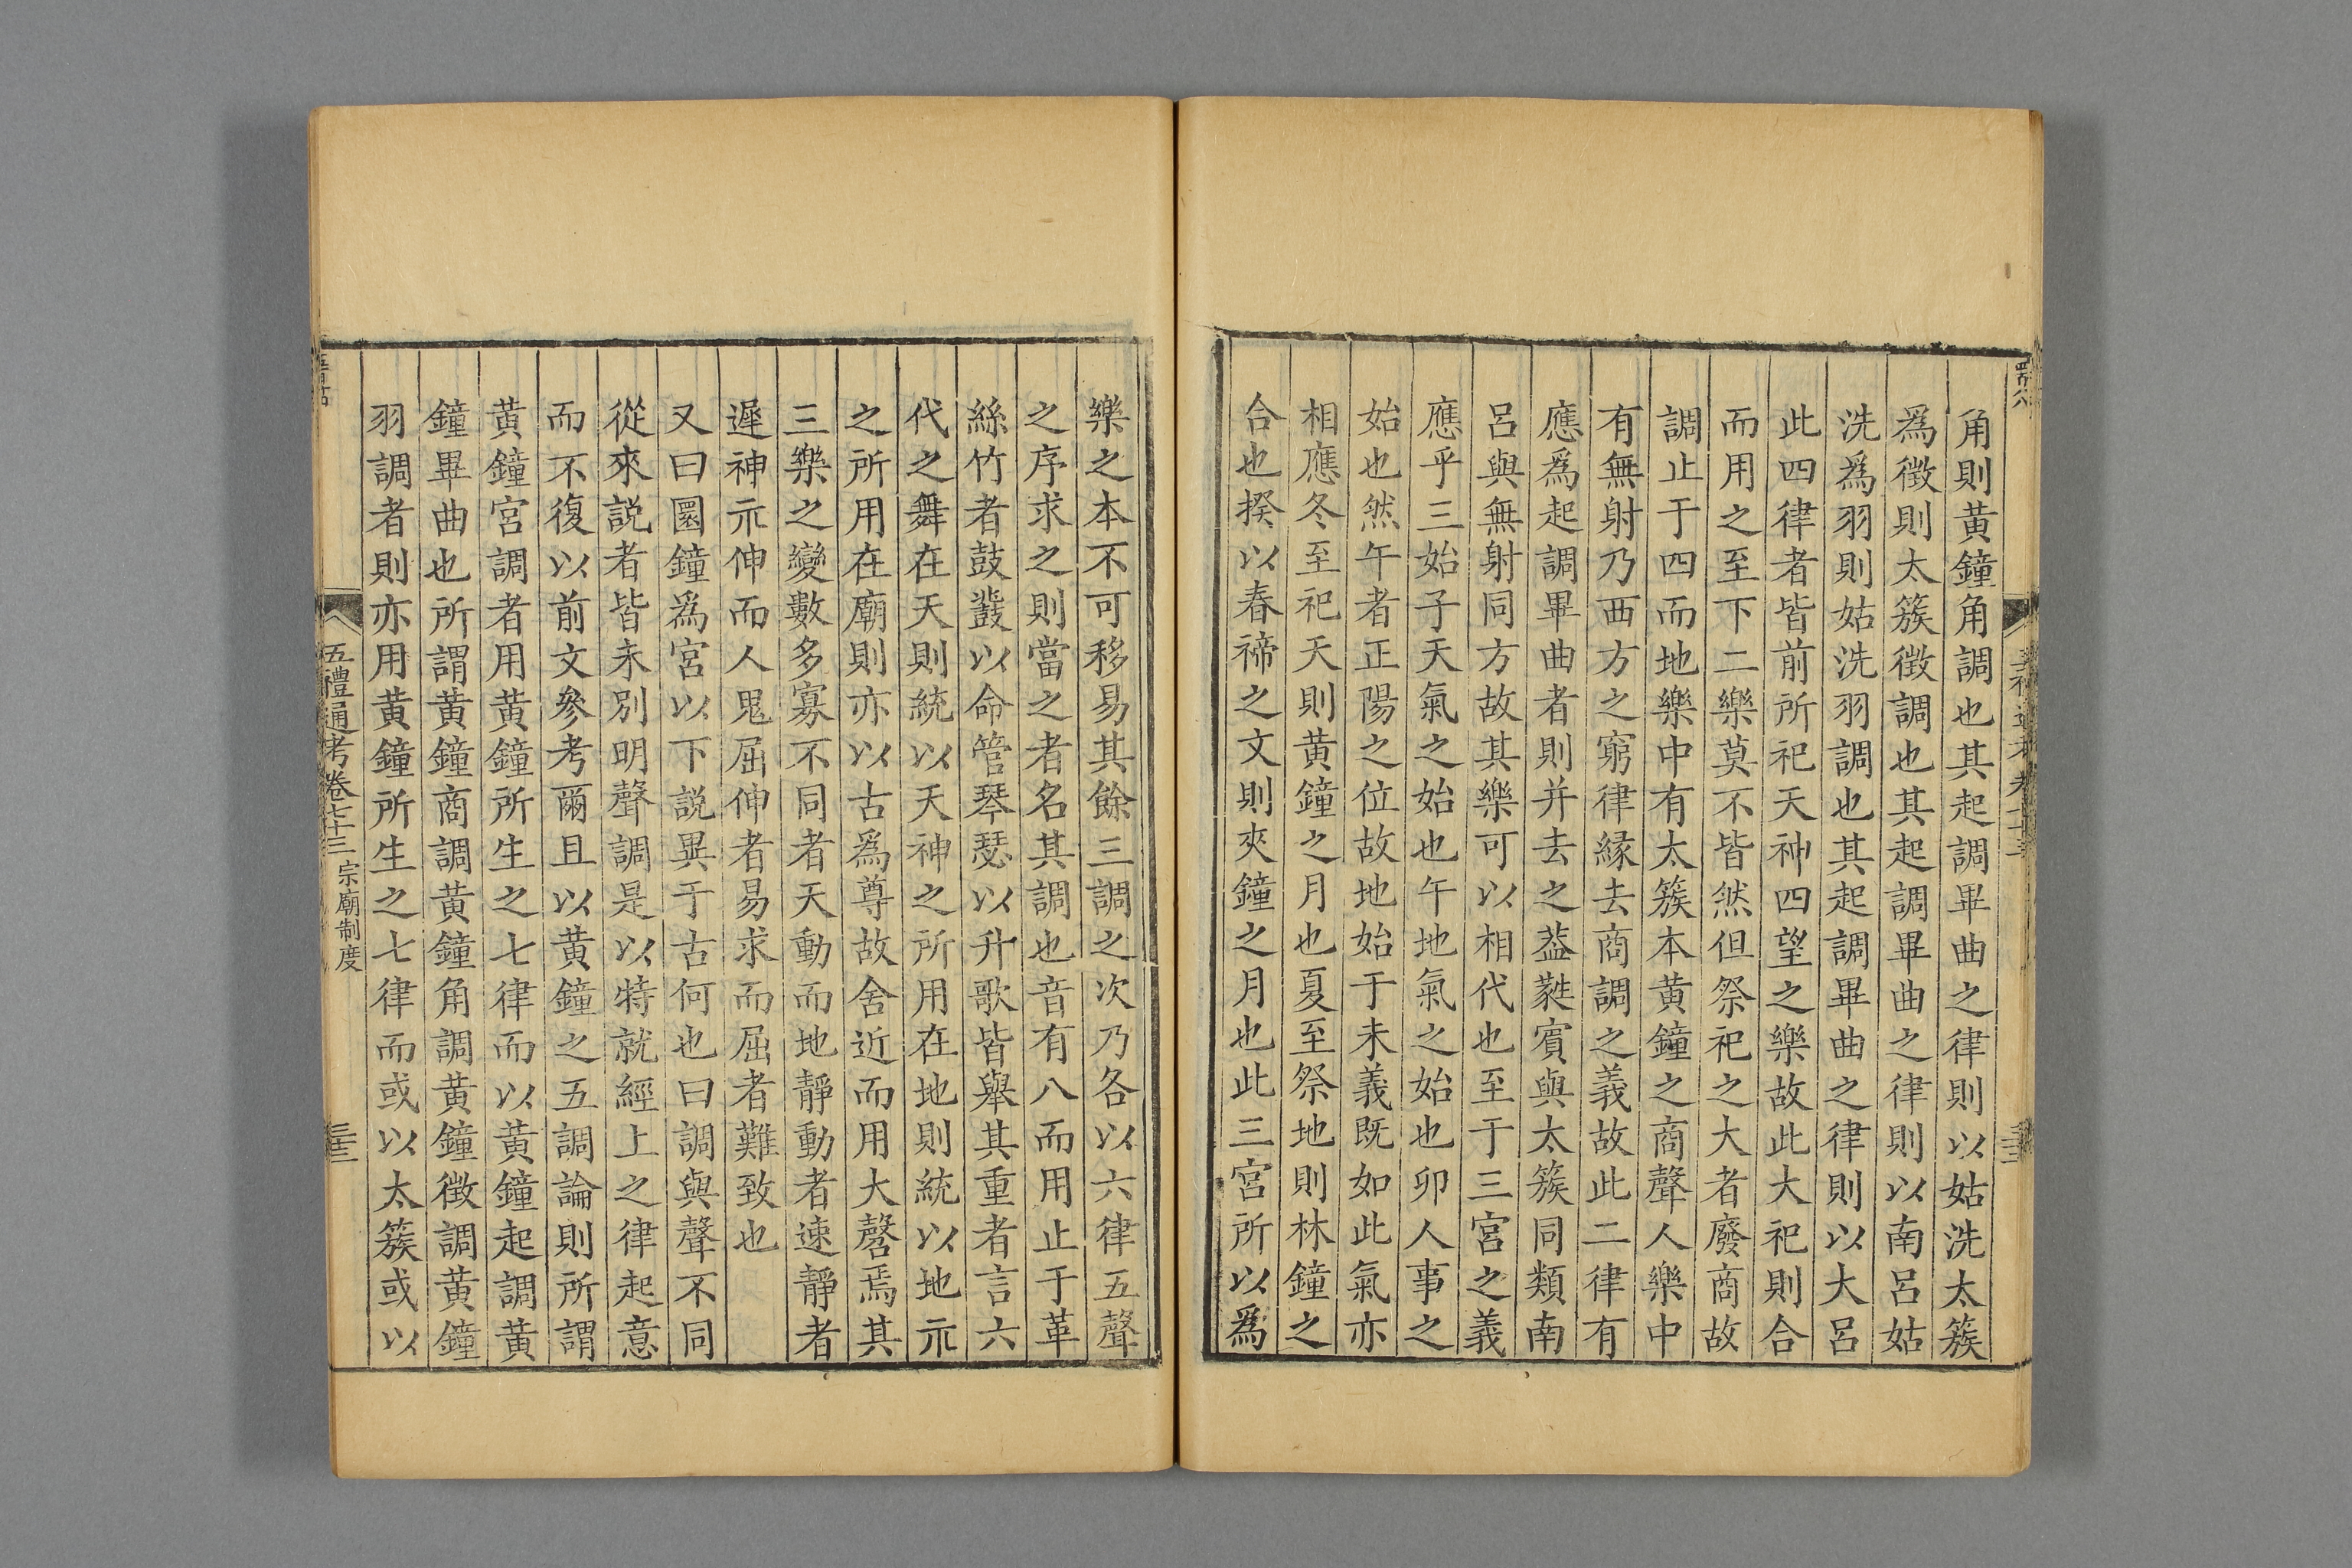 角則黃鐘角調也其起調畢曲之律則以姑洗太簇
爲徵則太簇徵調也其起調畢曲之律則以南呂姑
洗爲羽則姑洗羽調也其起調畢曲之律則以大呂
此四律者皆前所祀天神四望之樂故此大祀則合
而用之至下二樂莫不皆然但祭祀之大者廢商故
調止于四而地樂中有太簇本黃鐘之商聲人樂中
有無射乃西方之窮律緣去商調之義故此二律有
應爲起調畢曲者則并去之葢蕤賓與太簇同類南
呂與無射同方故其樂可以相代也至于三宮之義
應乎三始子天氣之始也午地氣之始也卯人事之
始也然午者正陽之位故地始于未義既如此氣亦
相應冬至祀天則黃鐘之月也夏至祭地則林鐘之
合也揆以春禘之文則夾鐘之月也此三宮所以爲
樂之本不可移易其餘三調之次乃各以六律五聲
之序求之則當之者名其調也音有八而用止于革
絲竹者鼓鼗以命管琴瑟以升歌皆舉其重者言六
代之舞在天則統以天神之所用在地則統以地示
之所用在廟則亦以古爲尊故舍近而用大磬焉其
三樂之變數多寡不同者天動而地靜動者速靜者
遲神示伸而人鬼屈伸者易求而屈者難致也
又曰圜鐘爲宮以下說異于古何也曰調與聲不同
從來說者皆未別明聲調是以特就經上之律起意
而不復以前文參考爾且以黃鐘之五調論則所謂
黃鐘宮調者用黃鐘所生之七律而以黃鐘起調黃
鐘畢曲也所謂黃鐘商調黃鐘角調黃鐘徵調黃鐘
羽調者則亦用黃鐘所生之七律而或以太簇或以
五禮通考卷七十三 宗廟制度